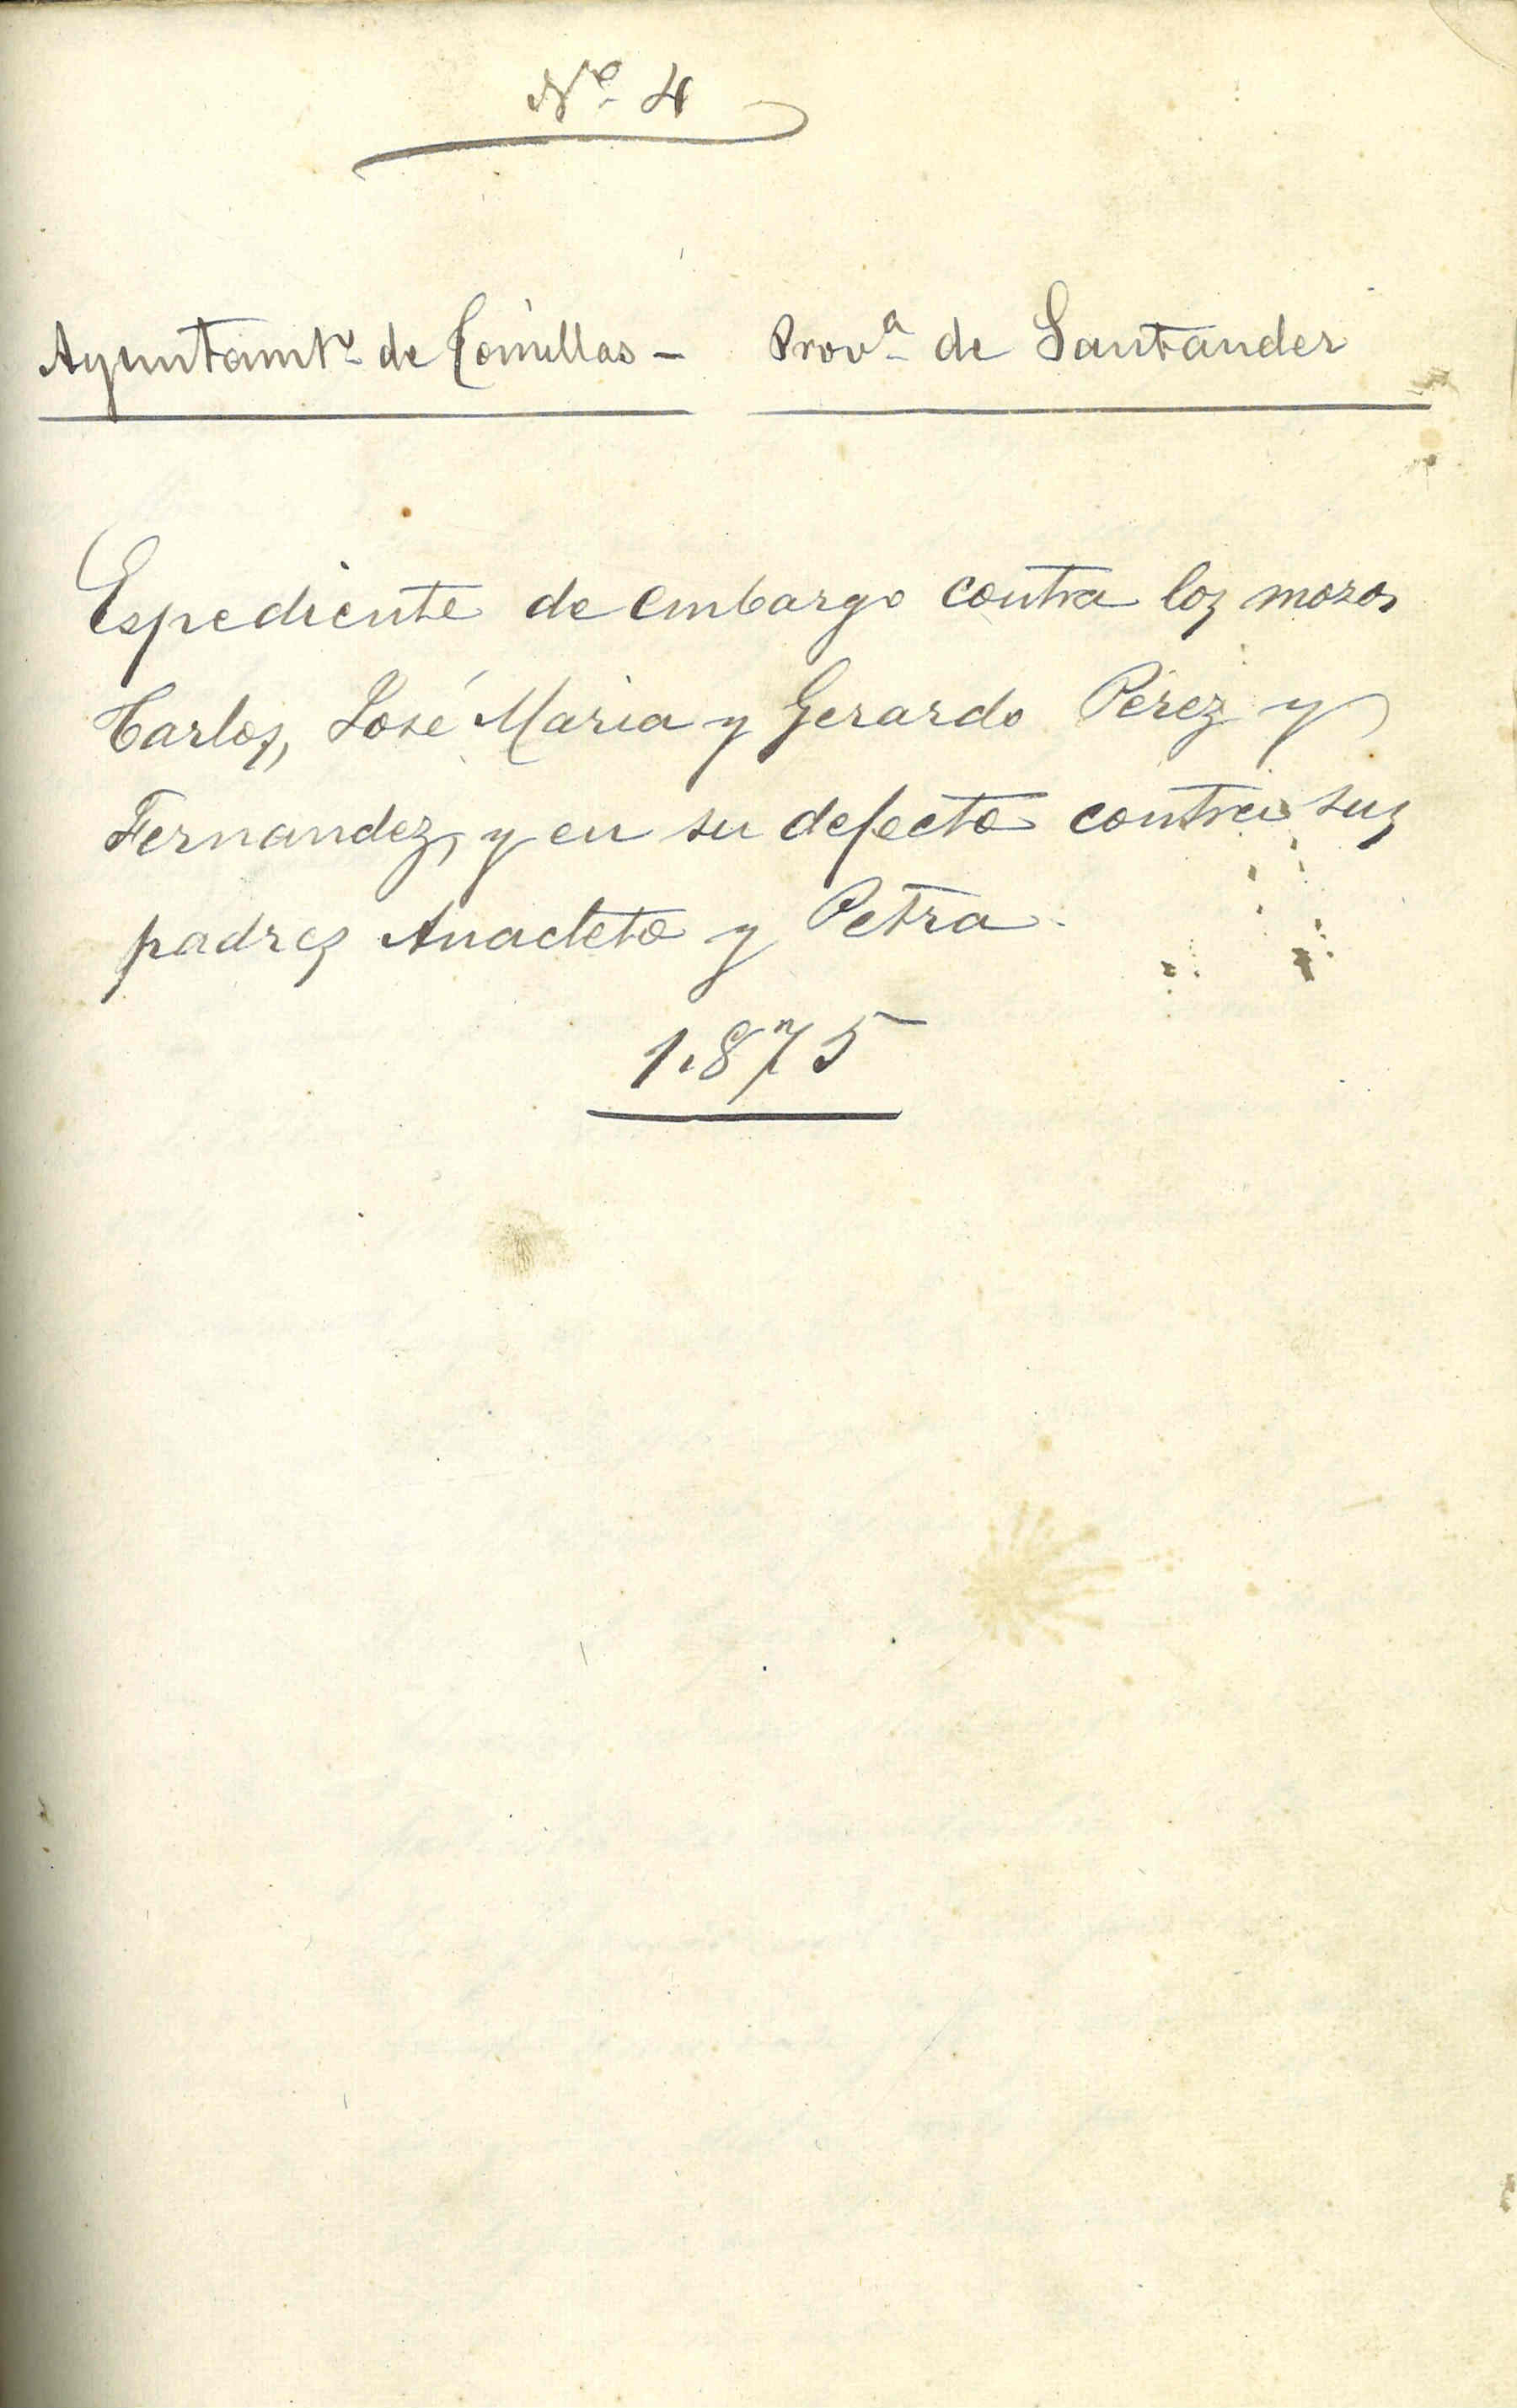 Nº 4
Ayuntamto de Comillas - Prova de Santander
Espediente de embargo contra los mozos
Carlos, José Maria y Gerardo Pérez y
Fernandez, y en su defecto contra sus
padres Anacleto y Petra.
1.875